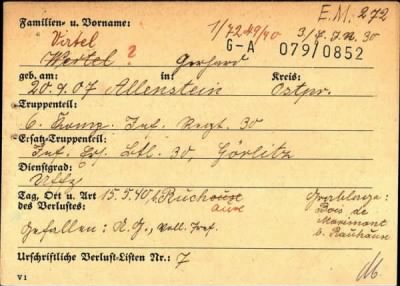 Familien- u. Vorname:
E.M. 272
1/72.49/40 3/J.J.R. 30
Virtel
G-A 079/0852
Wertel ? Gerhard
geb. am: in Kreis:
20.9.07 Allenstein Ostpr.
Truppenteil:
6. Komp. Inf. Regt. 30
Ersatz-Truppenteil:
Inf. Ers. Btl. 30, Görlitz
Dienstgrad:
Uffz
Tag, Ort u. Art des Verlustes:
15.5.40
Grablage:
Bois de
Gefallen: A.G.,
Urschriftliche Verlust-Listen Nr.: 7
V 1